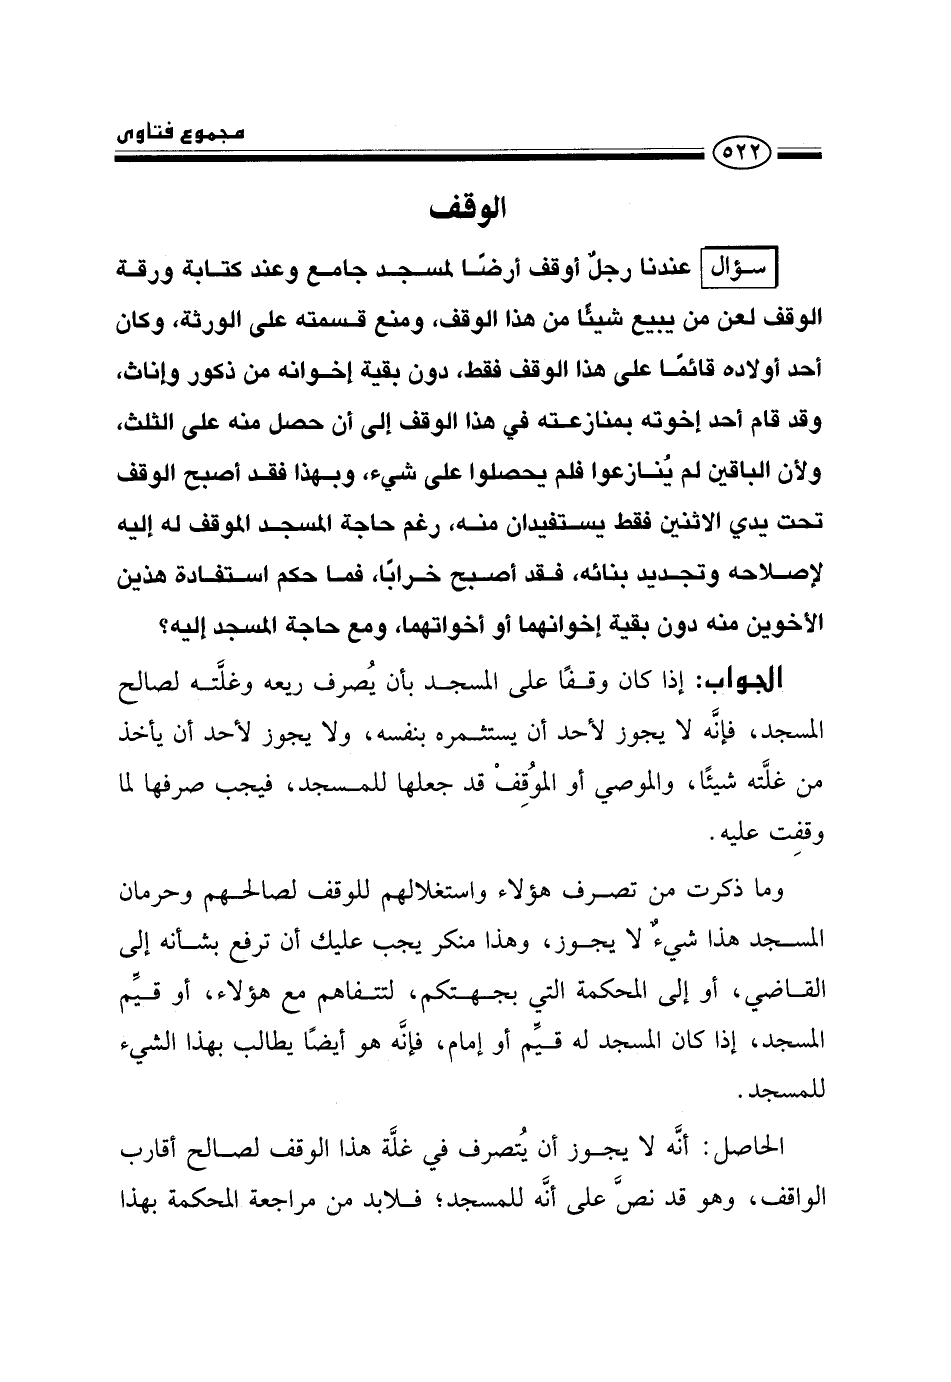 مجموع فتاوى
٥٢٢
الوقف
سؤال عندنا رجلٌ أوقف أرضًا لمسجد جامع وعند كتابة ورقة
الوقف لعن من يبيع شيئًا من هذا الوقف، ومنع قسمته على الورثة، وكان
أحد أولاده قائمًا على هذا الوقف فقط، دون بقية إخوانه من ذكور وإناث،
وقد قام أحد إخوته بمنازعته في هذا الوقف إلى أن حصل منه على الثلث،
ولأن الباقين لم يُنازعوا فلم يحصلوا على شيء، وبهذا فقد أصبح الوقف
تحت يدي الاثنين فقط يستفيدان منه، رغم حاجة المسجد الموقف له إليه
لإصلاحه وتجديد بنائه، فقد أصبح خرابًا، فما حكم استفادة هذين
الأخوين منه دون بقية إخوانهما أو أخواتهما، ومع حاجة المسجد إليه؟
الجواب: إذا كان وقفًا على المسجد بأن يُصرف ريعه وغلَّته لصالح
المسجد، فإنَّه لا يجوز لأحد أن يستثمره بنفسه، ولا يجوز لأحد أن يأخذ
من غلَّته شيئًا، والموصي أو الموُقِفْ قد جعلها للمسجد، فيجب صرفها لما
وقفِت عليه.
وما ذكرت من تصرف هؤلاء واستغلالهم للوقف لصالحهم وحرمان
المسجد هذا شيءٌ لا يجوز، وهذا منكر يجب عليك أن ترفع بشأنه إلى
القاضي، أو إلى المحكمة التي بجهتكم، لتتفاهم مع هؤلاء، أو قيِّم
المسجد، إذا كان المسجد له قيِّم أو إمام، فإنَّه هو أيضًا يطالب بهذا الشيء
للمسجد.
الحاصل: أنَّه لا يجوز أن يُتصرف في غلَّة هذا الوقف لصالح أقارب
الواقف، وهو قد نصَّ على أنَّه للمسجد؛ فلابد من مراجعة المحكمة بهذا